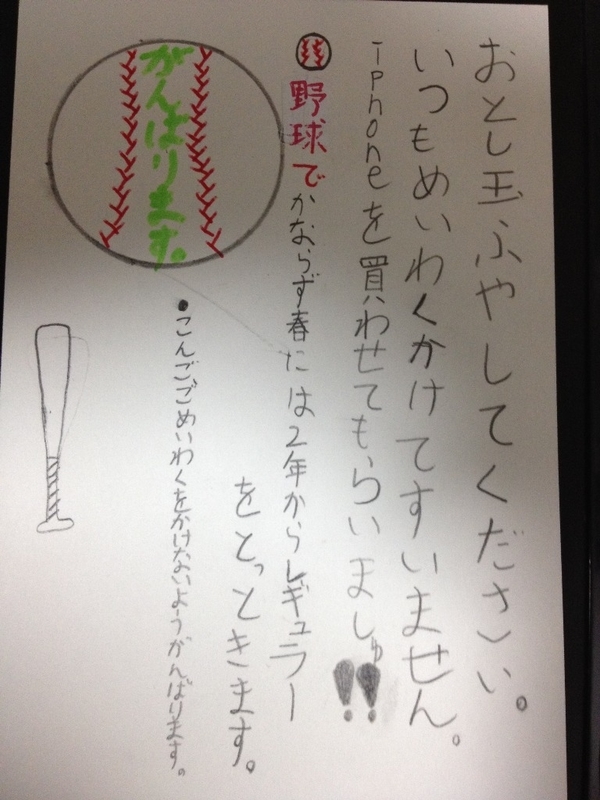 おとし玉ふやしてください。
いつもめいわくかけてすいません。
iphoneを買わせてもらいましゅ!!
野球でかならず春には2年からレギュラー
をとっときます。
・こんごごめいわくをかけないようがんばります。
がんばります。